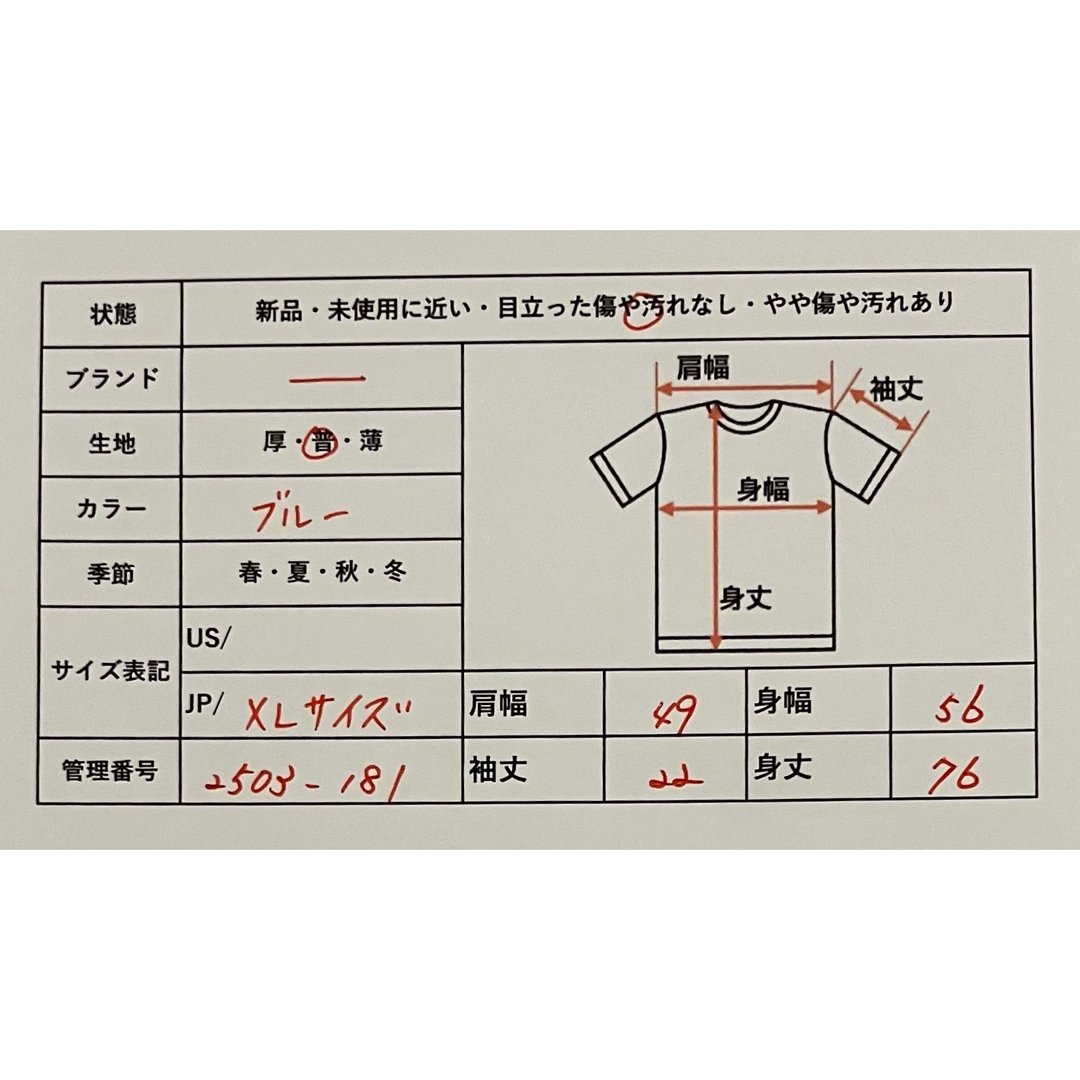 状態 新品・未使用に近い・目立った傷や汚れなし・やや傷や汚れあり
ブランド ー
生地 厚・普・薄
カラー ブルー
季節 春・夏・秋・冬
サイズ表記 US/
JP/ XLサイズ
管理番号 2503-181
肩幅
袖丈
身幅
身丈
肩幅 49 身幅 56
袖丈 22 身丈 76